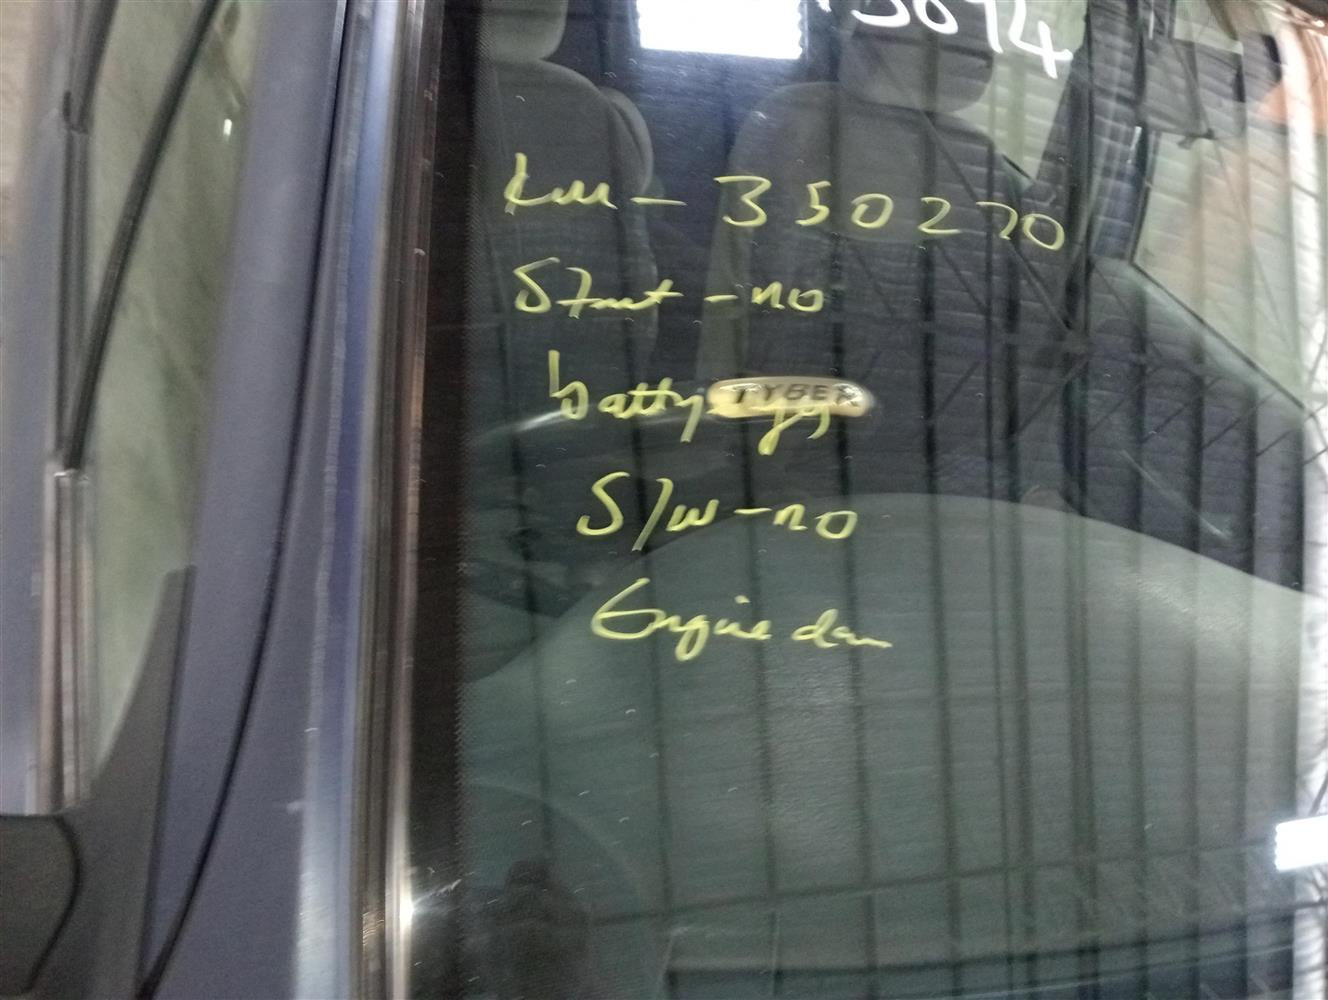 5694
km - 350270
Start - no
batty - yes
TYBER
S/w - no
Engine dam